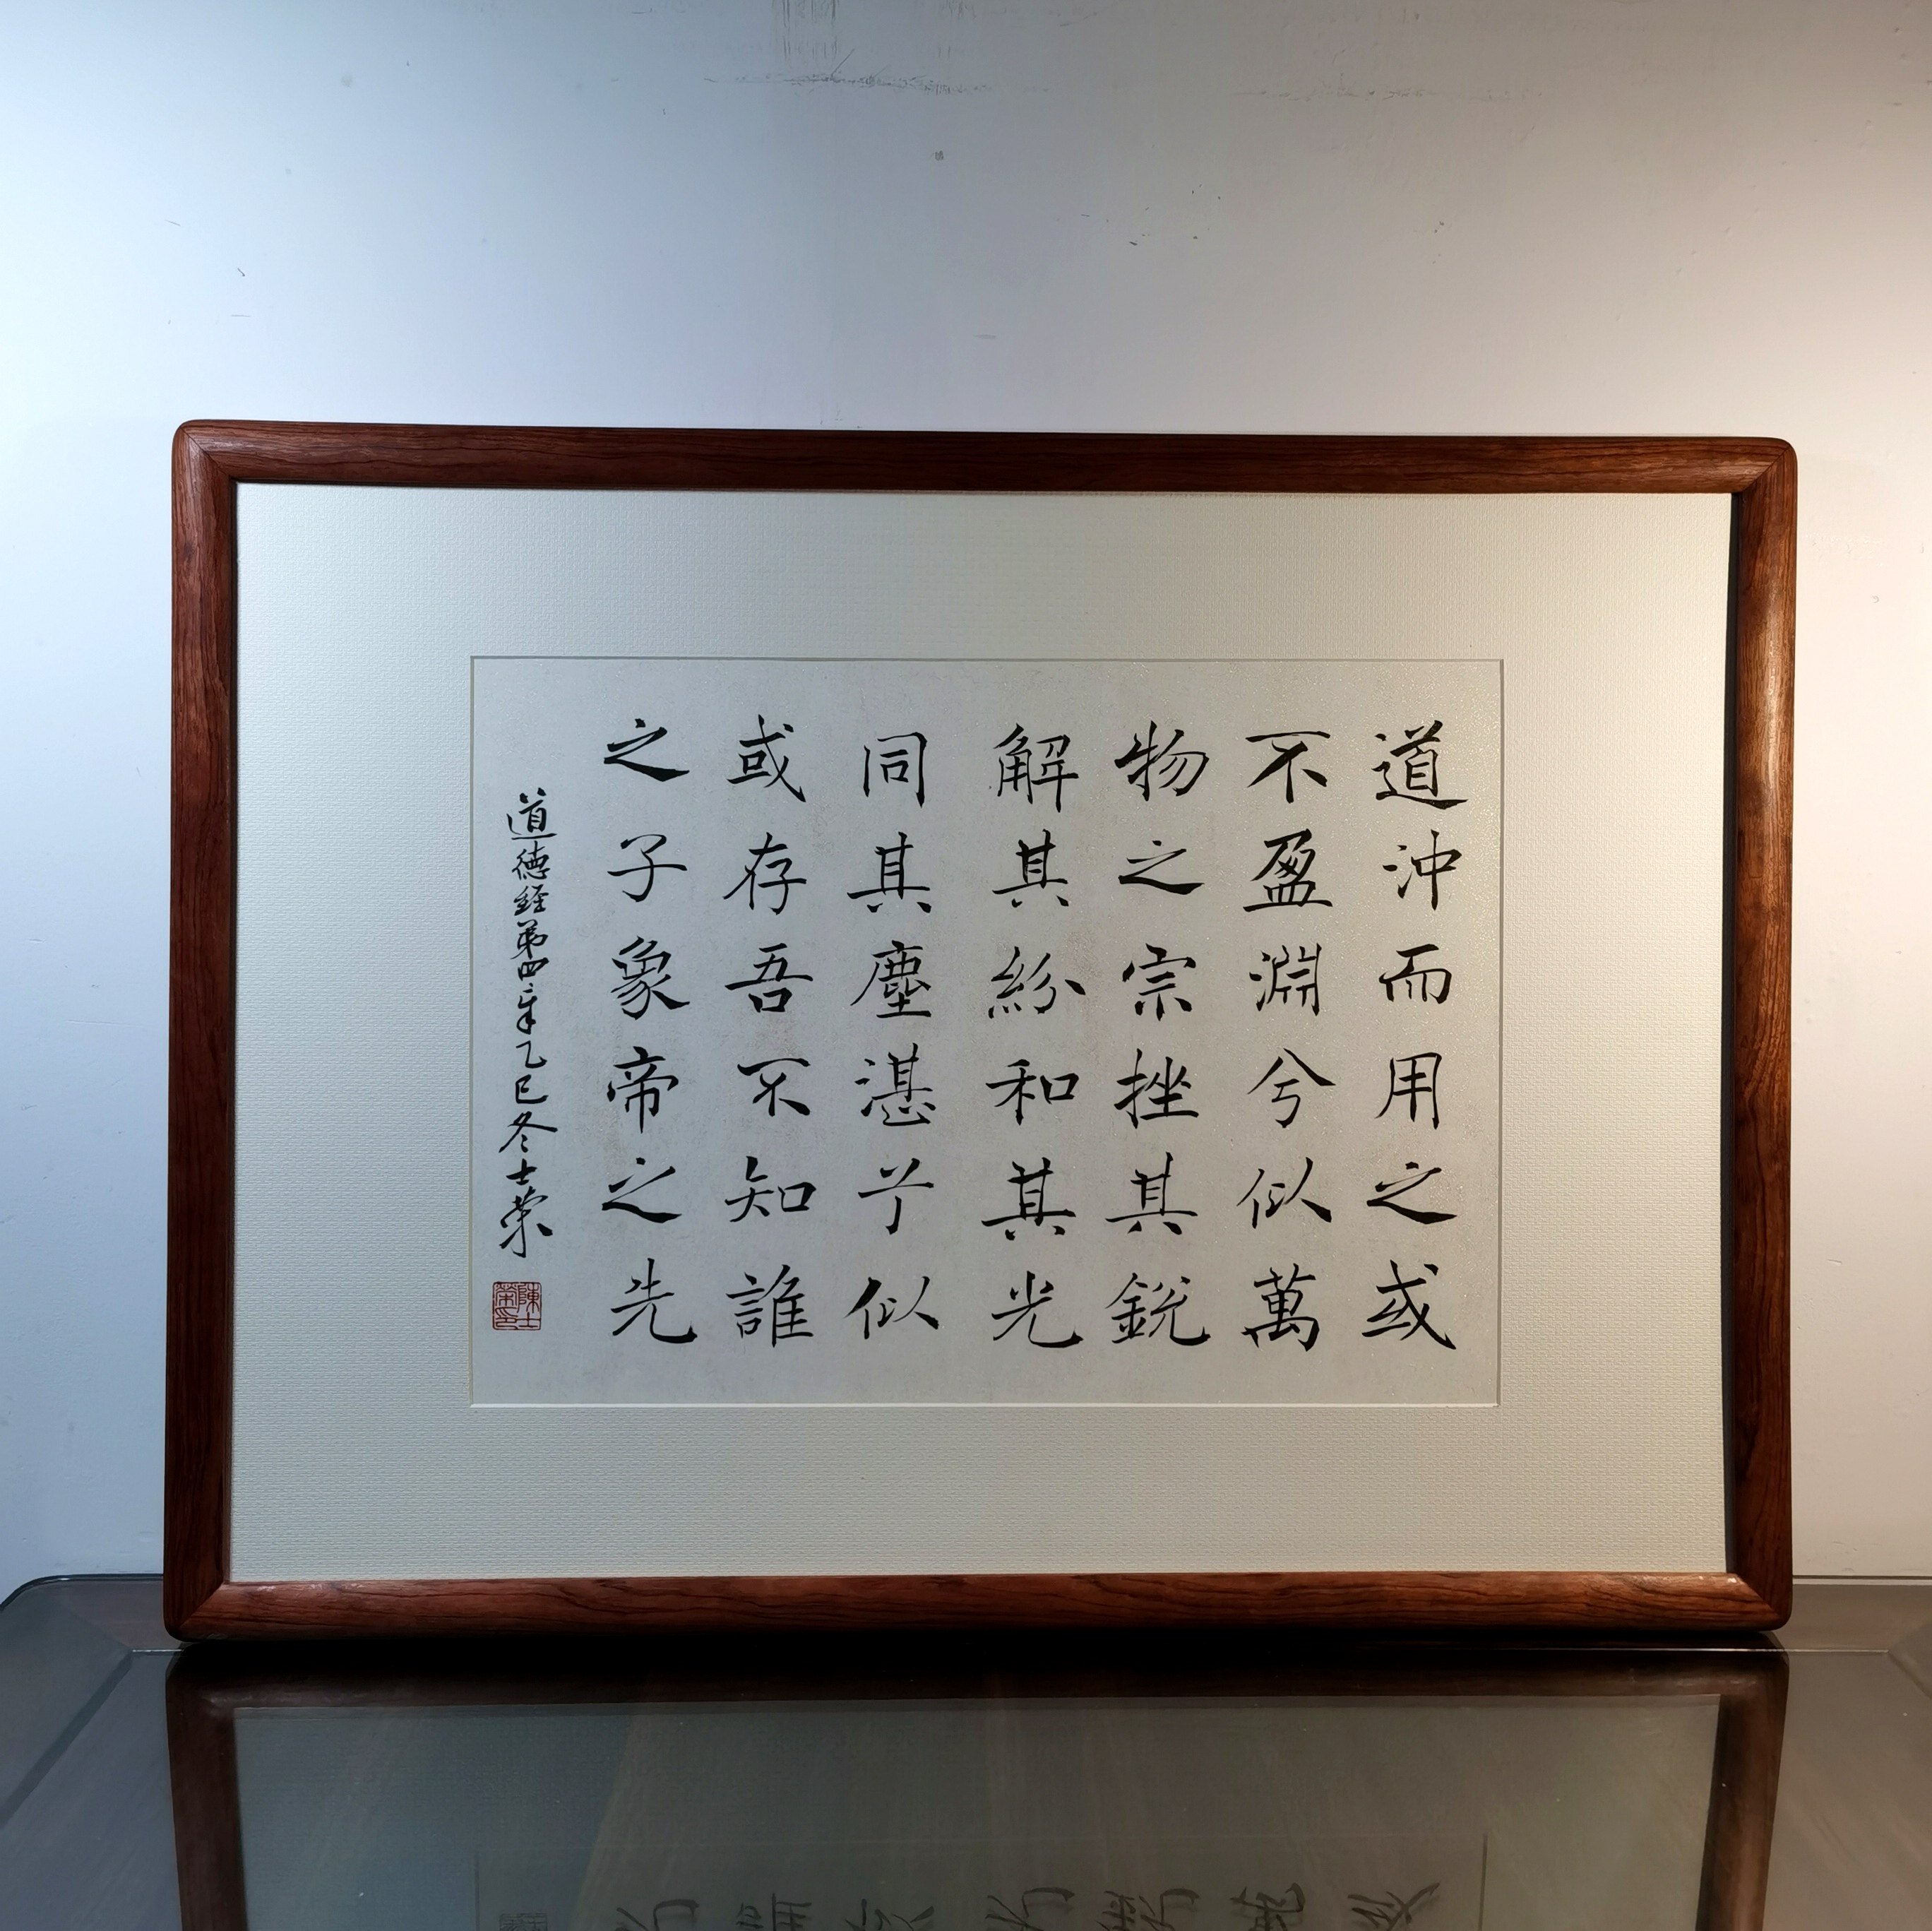 道沖而用之或
不盈淵兮似萬
物之宗挫其銳
解其紛和其光
同其塵湛兮似
或存吾不知誰
之子象帝之先
道德経第四章乙巳冬士荣
陳士榮印